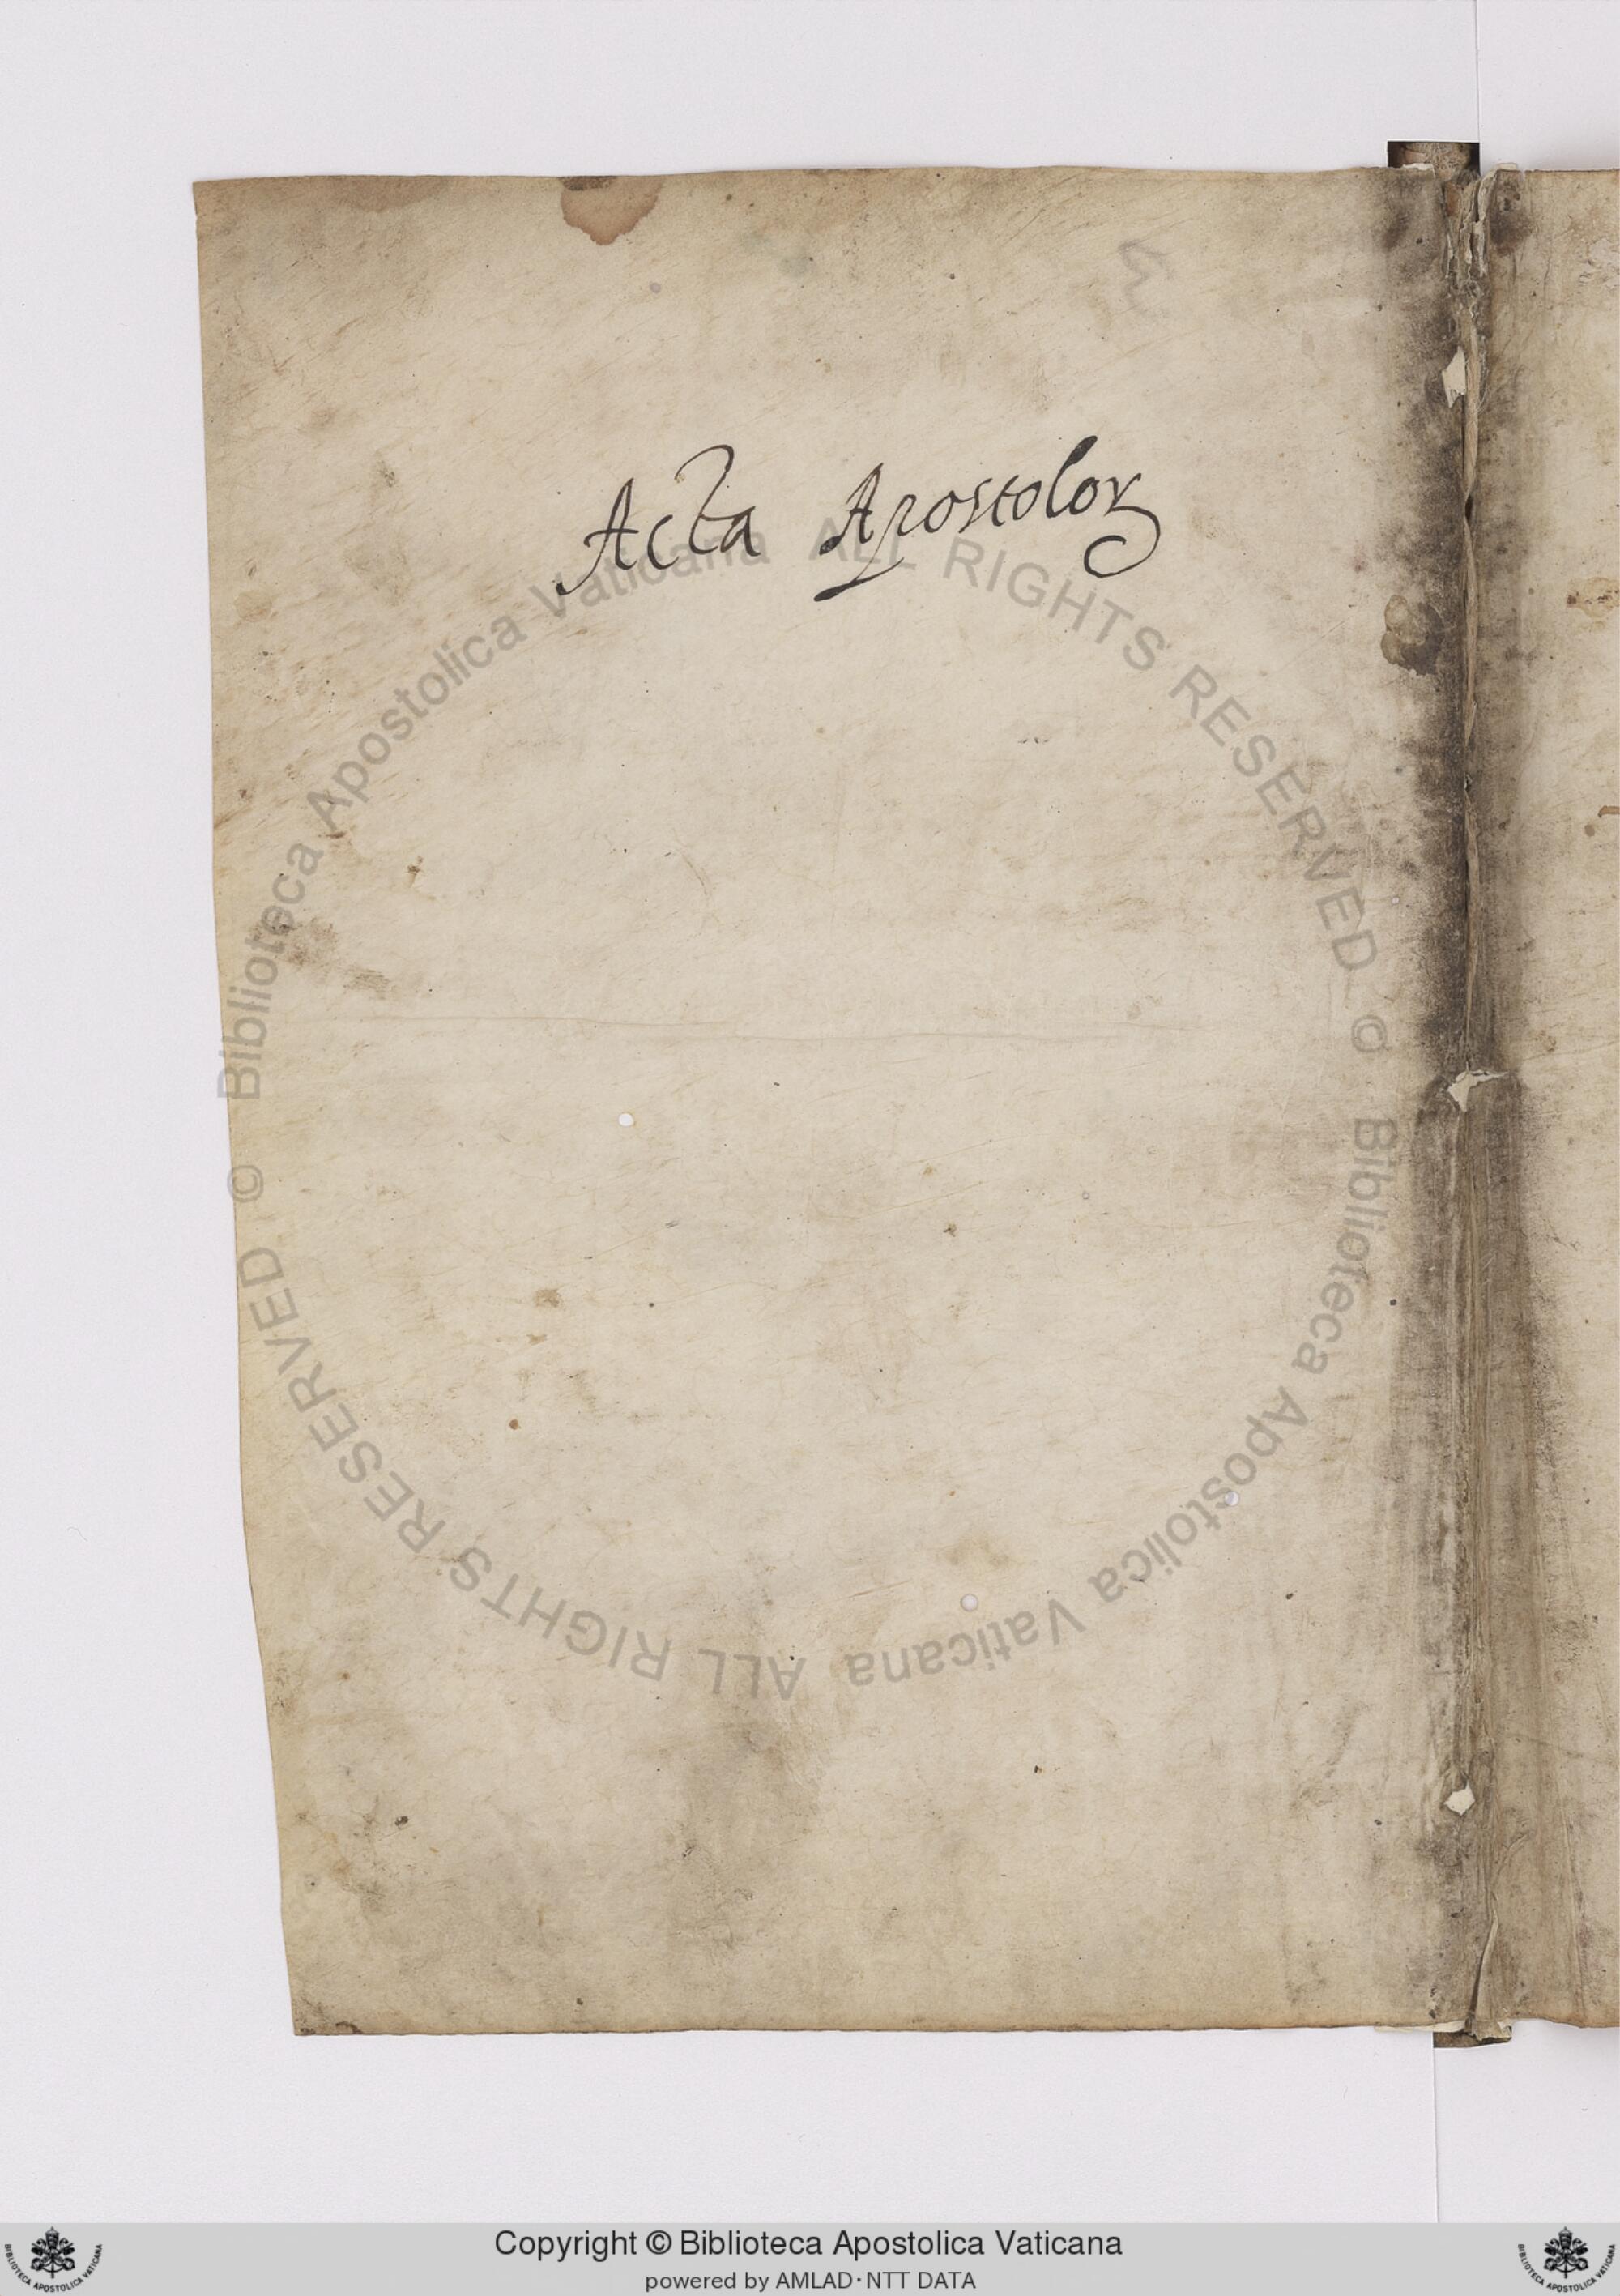 Acta Apostoloꝝ
© Biblioteca Apostolica Vaticana ALL RIGHTS RESERVED
© Biblioteca Apostolica Vaticana ALL RIGHTS RESERVED
Copyright © Biblioteca Apostolica Vaticana
powered by AMLAD·NTT DATA
BIBLIOTECA APOSTOLICA VATICANA
BIBLIOTECA APOSTOLICA VATICANA